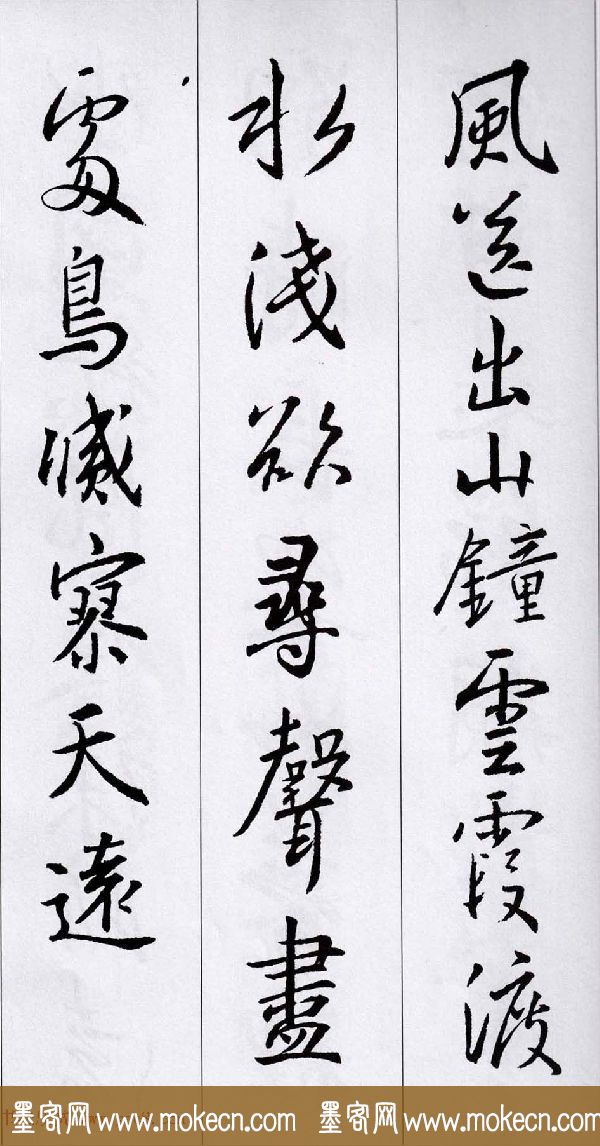 風送出山鐘雲霞渡
水淺欲尋聲盡
處鳥滅寥天遠
墨客网www.mokecn.com 墨客网www.mokecn.com